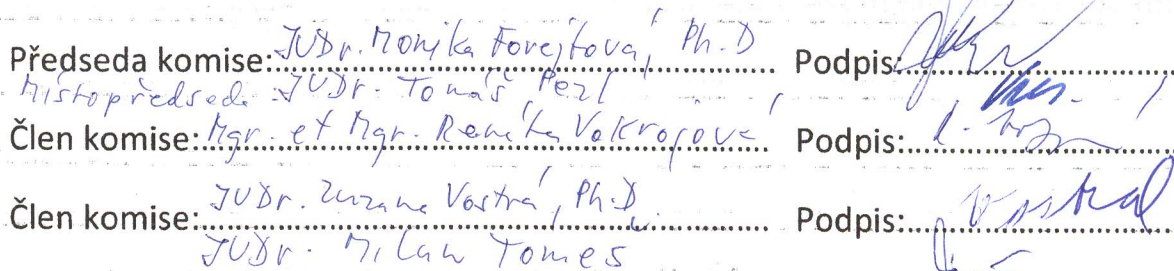 Předseda komise: JUDr. Monika Forejtová, Ph.D Podpis:
Místopředseda: JUDr. Tomáš Pezl
Člen komise: Mgr. et Mgr. Renáta Vokrojová Podpis:
Člen komise: JUDr. Zuzana Vostrá, Ph.D. Podpis: Vostrá
JUDr. Milan Tomeš